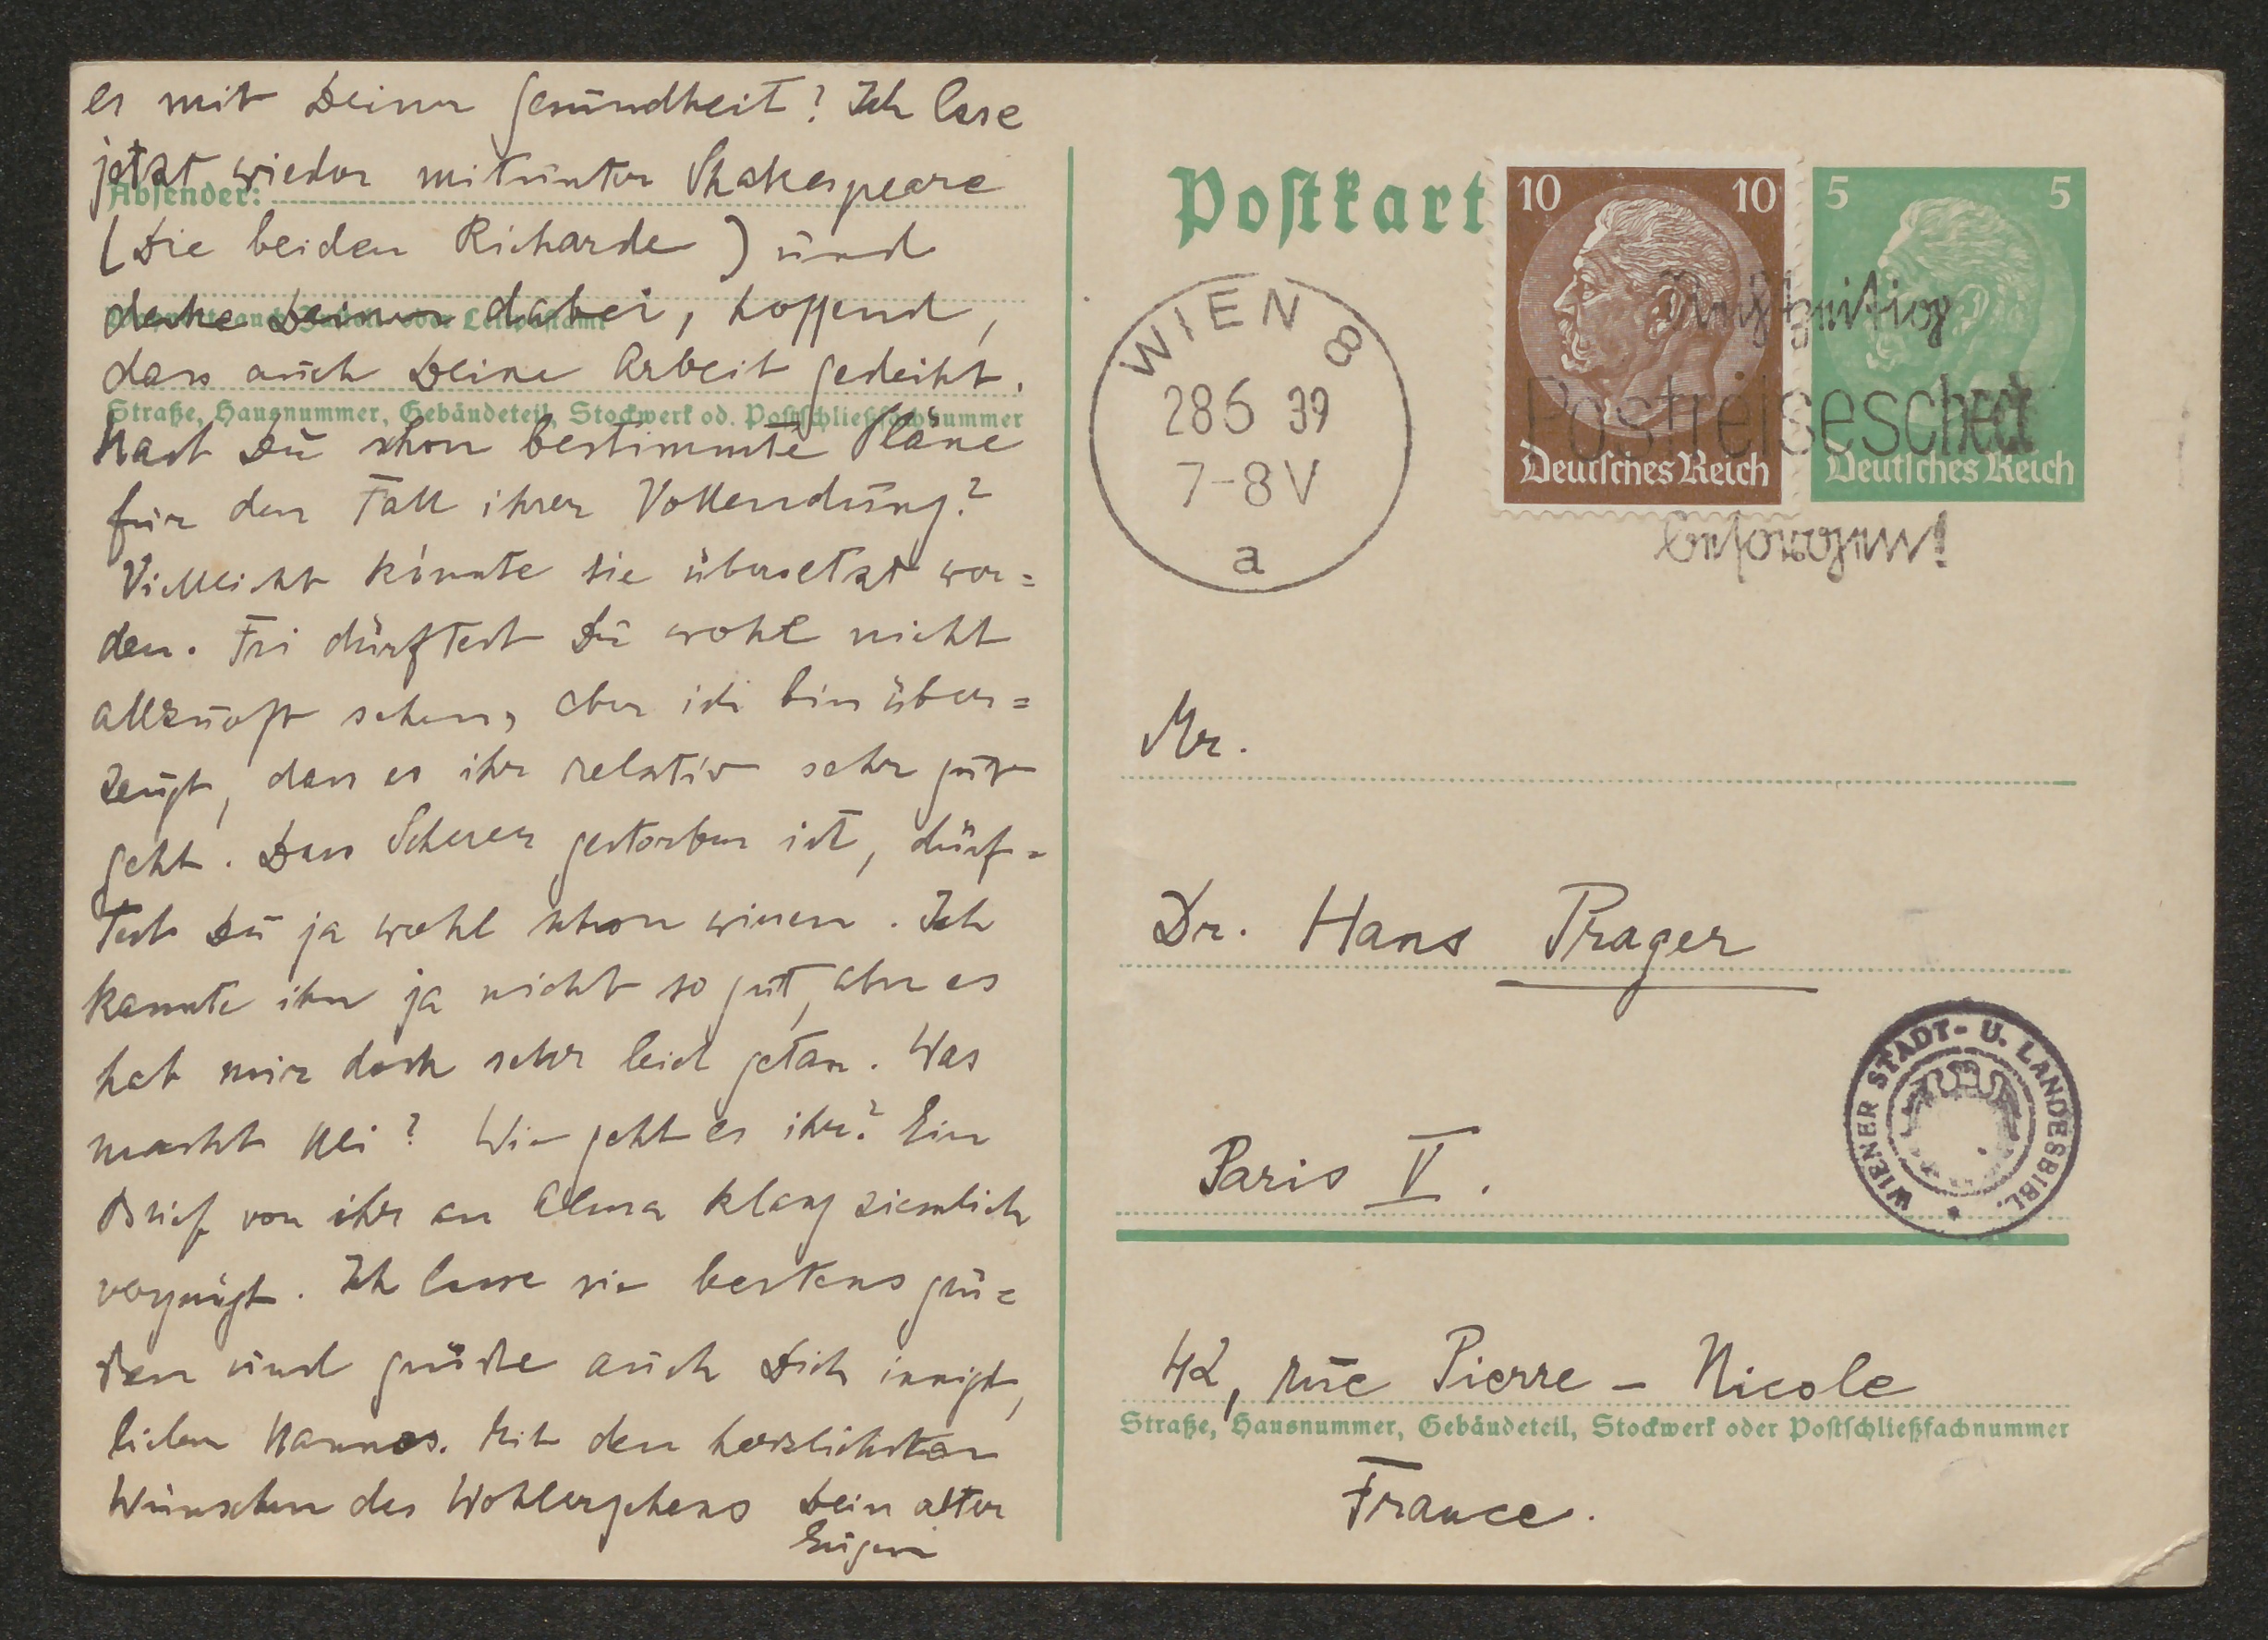 es mit Deiner Gesundheit? Ich lese
jetzt wieder mitunter Shakespeare
Absender:
(Die beiden Richarde) und
denke Deiner dabei, hoffend,
dass auch Deine Arbeit gedeiht.
Straße, Hausnummer, Gebäudeteil, Stockwerk od. Postschließfachnummer
Hast Du schon bestimmte Pläne
für den Fall ihrer Vollendung?
Vielleicht könnte sie übersetzt wer=
den. Fri dürftest Du wohl nicht
allzuoft sehen, aber ich bin über=
zeugt, dass es ihr relativ sehr gut
geht. Dass Scherer gestorben ist, dürf=
test Du ja wohl schon wissen. Ich
kannte ihn ja nicht so gut, aber es
hat mir doch sehr leid getan. Was
macht Mi? Wie geht es ihr? Ein
Brief von ihr an Alma klang ziemlich
vergnügt. Ich lasse sie bestens grü=
ßen und grüße auch Dich innigst,
lieber Hannes. Mit den herzlichsten
Wünschen des Wohlergehens Dein alter
Eugen
Postkart
10 10
Deutsches Reich
5 5
Deutsches Reich
WIEN 8
28 6 39
7-8 V
a
Rechtzeitig
Postreisescheck
besorgen!
Mr.
Dr. Hans Prager
Paris V.
WIENER STADT- U. LANDESBIBL.
42, rue Pierre - Nicole
Straße, Hausnummer, Gebäudeteil, Stockwerk oder Postschließfachnummer
France.